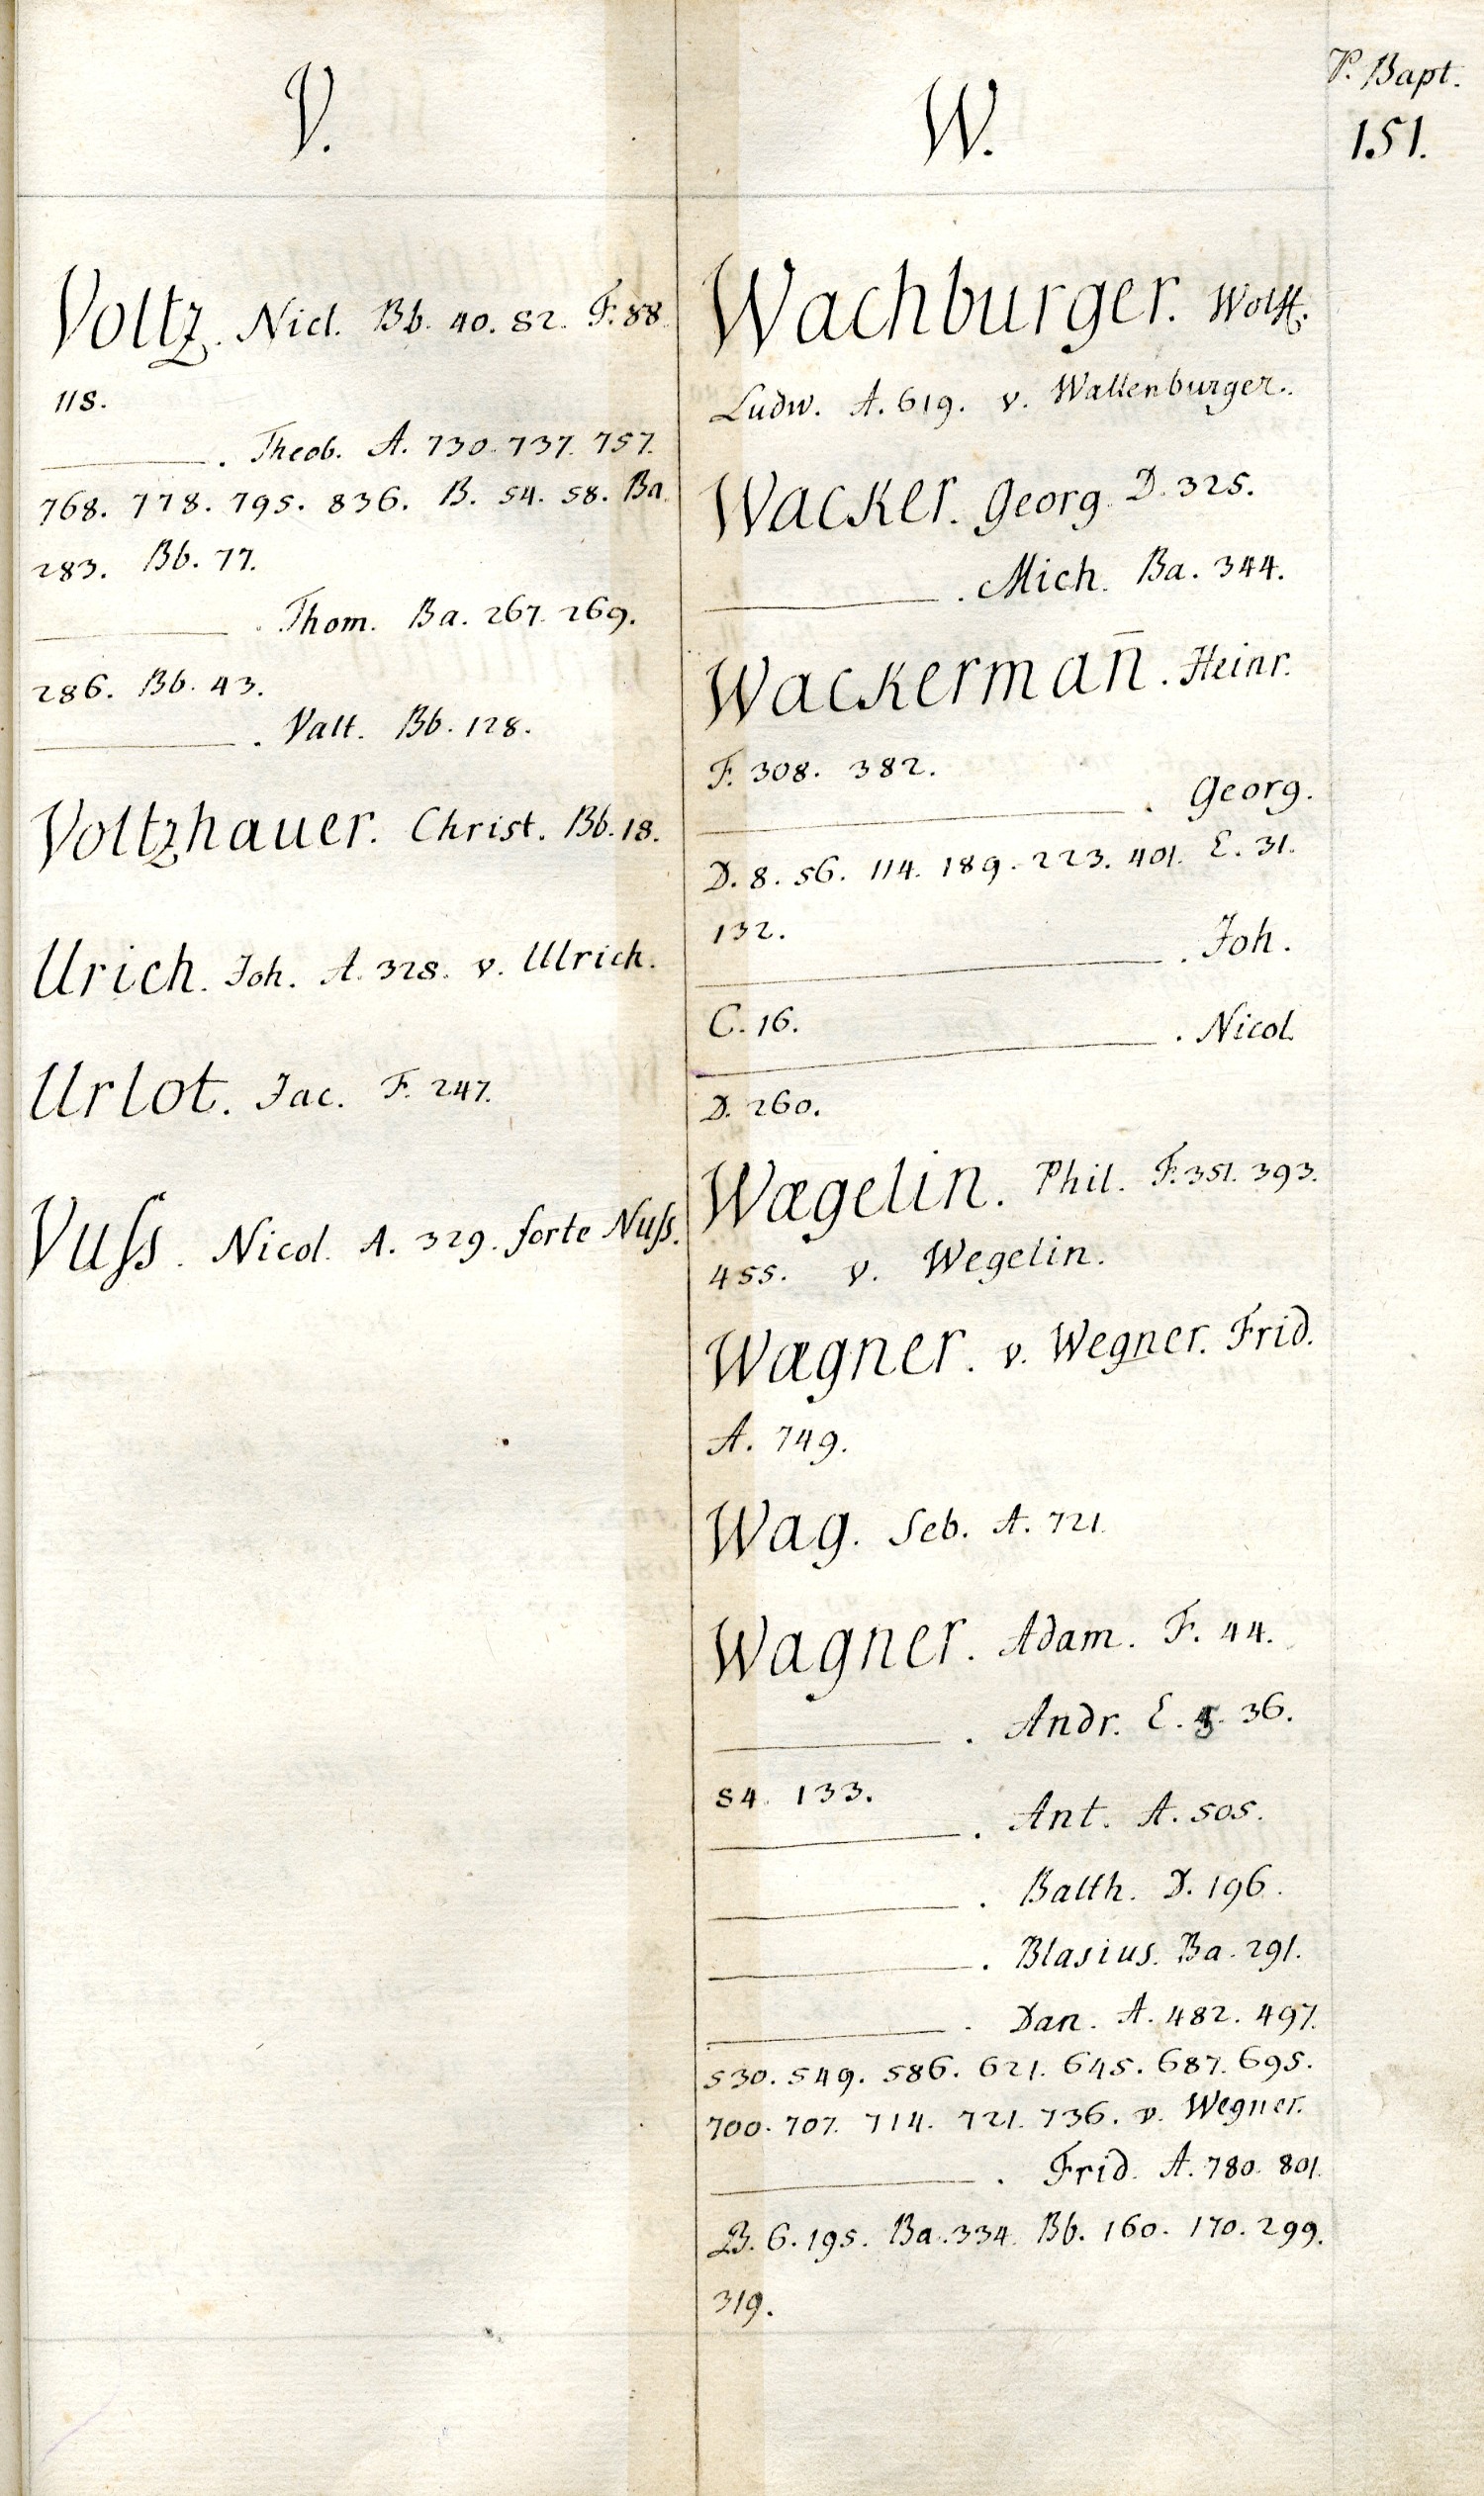 P. Bapt.
151.
V.
Voltz. Nicl. Bb. 40. 82. F. 88.
118.
———. Theob. A. 730. 737. 757.
768. 778. 795. 836. B. 54. 58. Ba.
283. Bb. 77.
———. Thom. Ba. 267. 269.
286. Bb. 43.
———. Valt. Bb. 128.
Voltzhauer. Christ. Bb. 18.
Urich. Joh. A. 328. v. Ulrich.
Urlot. Jac. F. 247.
Vuſs. Nicol. A. 329. forte Nuſs.
W.
Wachburger. Wolff.
Ludw. A. 619. v. Waltenburger.
Wacker. Georg. D. 325.
———. Mich. Ba. 344.
Wackerman̄. Heinr.
F. 308. 382.
———. Georg.
D. 8. 56. 114. 189. 223. 401. E. 31.
132.
———. Joh.
C. 16.
———. Nicol.
D. 260.
Wægelin. Phil. F. 351. 393.
455. v. Wegelin.
Wægner. v. Wegner. Frid.
A. 749.
Wag. Seb. A. 721.
Wagner. Adam. F. 44.
———. Andr. E. 36.
84. 133.
———. Ant. A. 505.
———. Balth. D. 196.
———. Blasius. Ba. 291.
———. Dan. A. 482. 497.
530. 549. 586. 621. 645. 687. 695.
700. 707. 714. 721. 736. v. Wegner.
———. Frid. A. 780. 801.
B. 6. 195. Ba. 334. Bb. 160. 170. 299.
319.